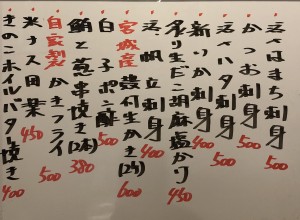 活はまち刺身 500
かつお刺身 500
活ハタ刺身 500
新いか刺身 400
炙り生だこ胡麻塩かり 450
活帆立刺身 400
宮城産殻付生かき(2ヶ) 600
白子ポン酢 500
鮪と葱串焼き(2本) 380
自家製かきフライ 500
米ナス田楽 450
きのこホイルバター焼き 400